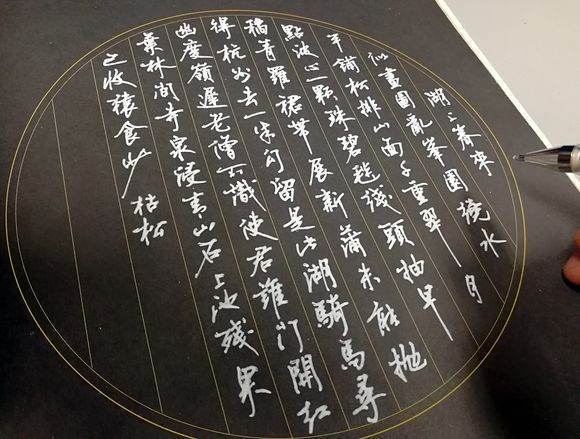 湖上春来
似畫圖亂峯圍繞水
平鋪松排山面千重翠月
點波心一顆珠碧毯线頭抽早
稻青羅裙帶展新蒲未能抛
得杭州去一半勾留是此湖騎馬尋
幽度嶺遲老僧不識使君誰门開红
葉林间寺泉浸青山石上池殘果
已收猿食少枯松